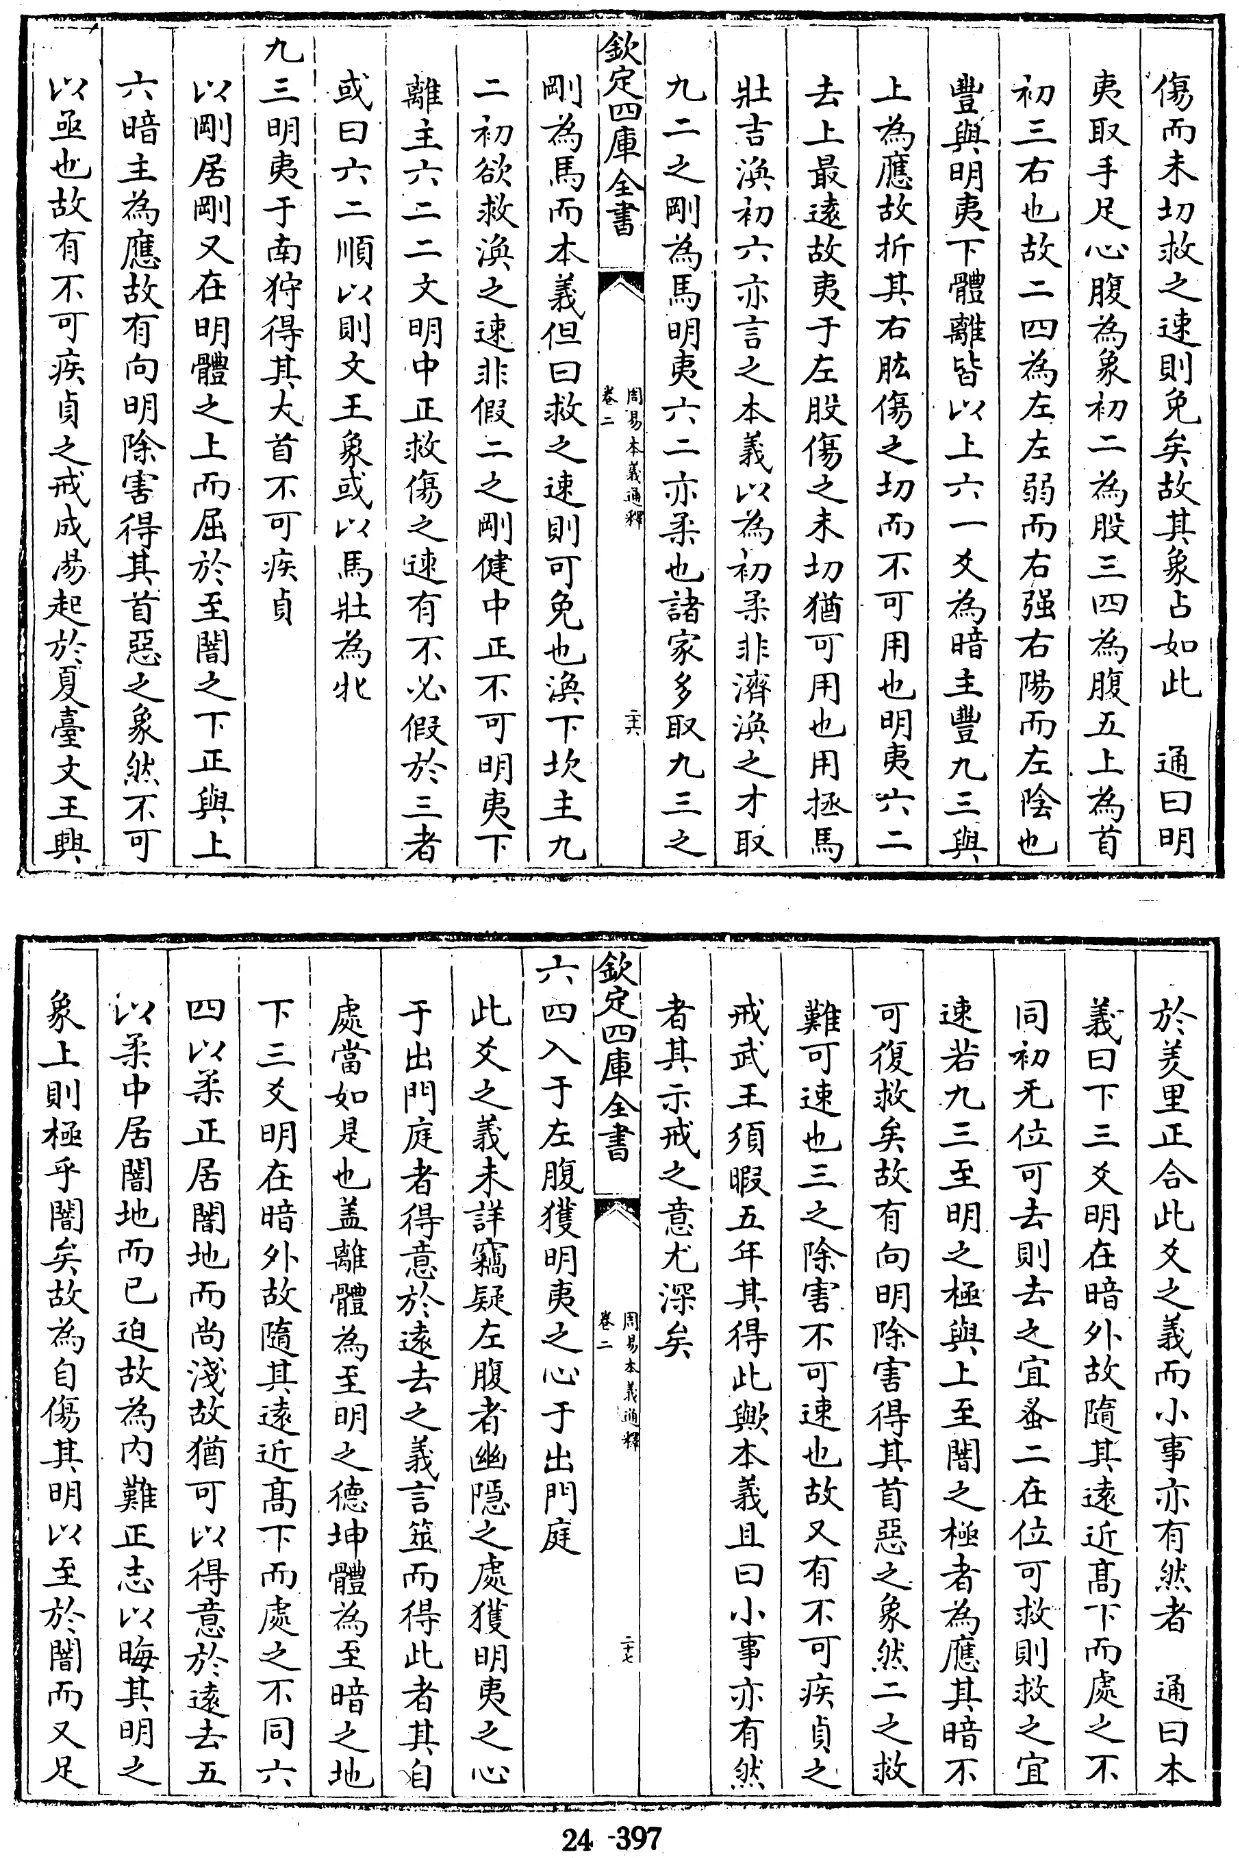 傷而未切救之速則免矣故其象占如此　通曰明
夷取手足心腹為象初二為股三四為腹五上為首
初三右也故二四為左左弱而右强右陽而左陰也
豐與明夷下體離皆以上六一爻為暗主豐九三與
上為應故折其右肱傷之切而不可用也明夷六二
去上最遠故夷于左股傷之未切猶可用也用拯馬
壯吉渙初六亦言之本義以為初柔非濟渙之才取
九二之剛為馬明夷六二亦柔也諸家多取九三之
欽定四庫全書
周易本義通釋
卷二
二十六
剛為馬而本義但曰救之速則可免也渙下坎主九
二初欲救渙之速非假二之剛健中正不可明夷下
離主六二二文明中正救傷之速有不必假於三者
或曰六二順以則文王象或以馬壯為牝
九三明夷于南狩得其大首不可疾貞
以剛居剛又在明體之上而屈於至闇之下正與上
六暗主為應故有向明除害得其首惡之象然不可
以亟也故有不可疾貞之戒成湯起於夏臺文王興
於羑里正合此爻之義而小事亦有然者　通曰本
義曰下三爻明在暗外故隨其遠近髙下而處之不
同初无位可去則去之宜蚤二在位可救則救之宜
速若九三至明之極與上至闇之極者為應其暗不
可復救矣故有向明除害得其首惡之象然二之救
難可速也三之除害不可速也故又有不可疾貞之
戒武王須暇五年其得此歟本義且曰小事亦有然
者其示戒之意尤深矣
欽定四庫全書
周易本義通釋
卷二
二十七
六四入于左腹獲明夷之心于出門庭
此爻之義未詳竊疑左腹者幽隱之處獲明夷之心
于出門庭者得意於遠去之義言筮而得此者其自
處當如是也盖離體為至明之德坤體為至暗之地
下三爻明在暗外故隨其遠近髙下而處之不同六
四以柔正居闇地而尚淺故猶可以得意於遠去五
以柔中居闇地而已迫故為内難正志以晦其明之
象上則極乎闇矣故為自傷其明以至於闇而又足
24-397